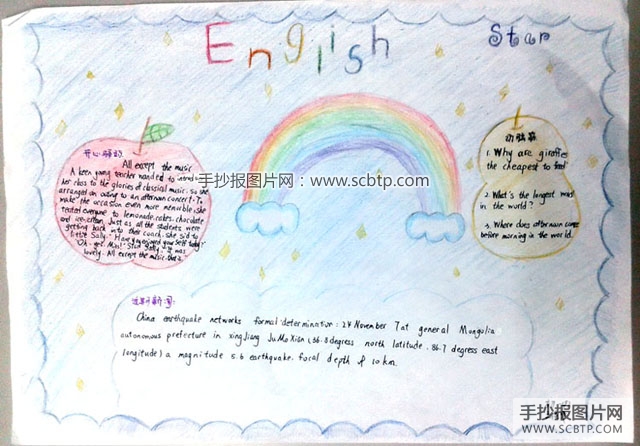 English
Star
开心驿站
All except the music
A keen young teacher wanted to introduce
her class to the glories of classical music, so she
arranged an outing to an afternoon concert. To
make the occasion even more memorable she
treated everyone to lemonade, cakes, chocolate
and ice-cream. Just as all the students were
getting back into their coach, she said to
little Sally: "Have you enjoyed yourself today?"
"Oh, yes, Miss!" said Sally. "It was
lovely. All except the music, that is."
手抄报图片网:www.scbtp.com
1. Why are giraffes
the cheapest to feed
2. What's the longest word
in the world?
3. Where does afternoon come
before morning in the world.
China earthquake networks formal determination: 24 November 7 at general Mongolia
autonomous prefecture in xingjiang JuMoXian (36.8 degrees north latitude. 86.7 degrees east
longitude) a magnitude 5.6 earthquake. focal depth of 10 km.
手抄报图片网
WWW.SCBTP.COM